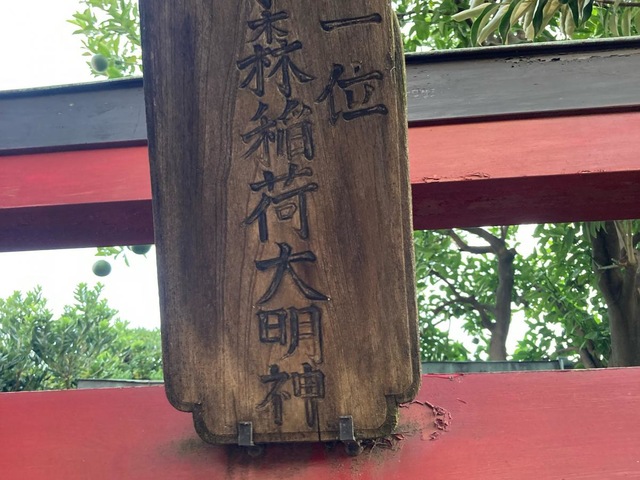 一位
森稲荷大明神